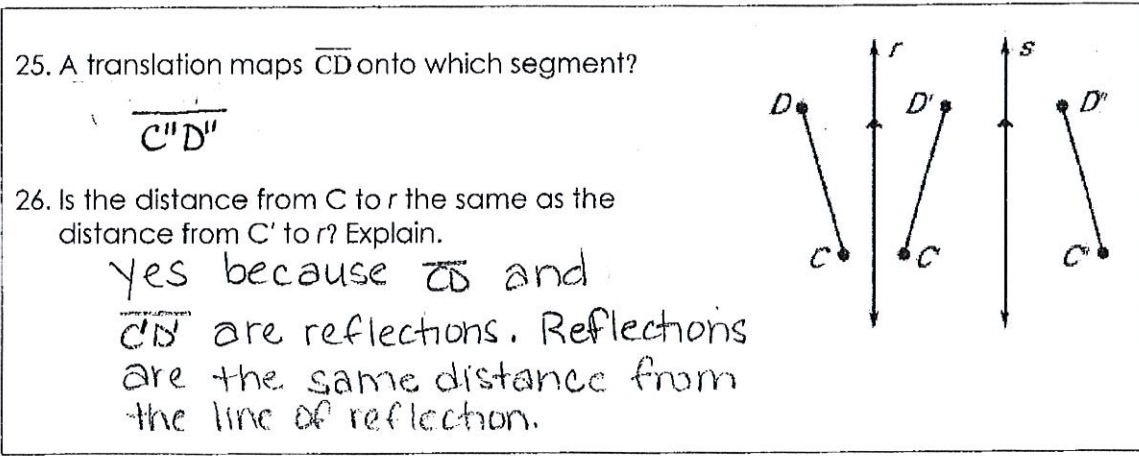 25. A translation maps CD onto which segment?
C"D"
26. Is the distance from C to r the same as the
distance from C' to r? Explain.
Yes because CD and
C'D' are reflections. Reflections
are the same distance from
the line of reflection.
r
s
D
D'
D"
C
C'
C"